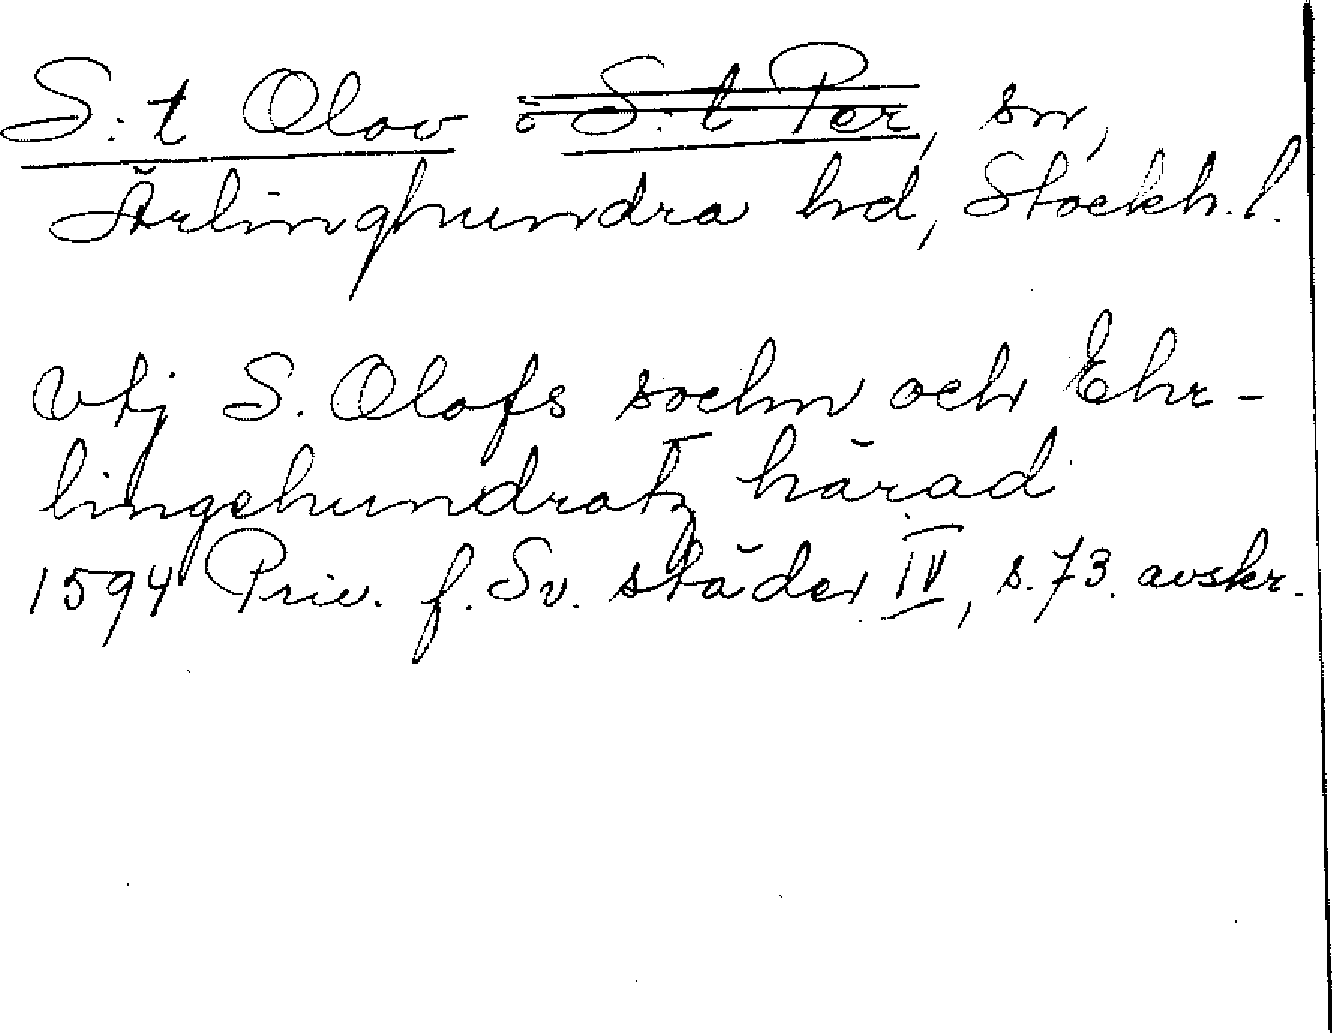 S:t Olov o S:t Per, sn,
Ärlinghundra hd, Stockh. l.
Vtj S. Olofs sochn och Ehr-
lingehundratz härad
1594 Priv. f. Sv. städer IV, s. 73. avskr.